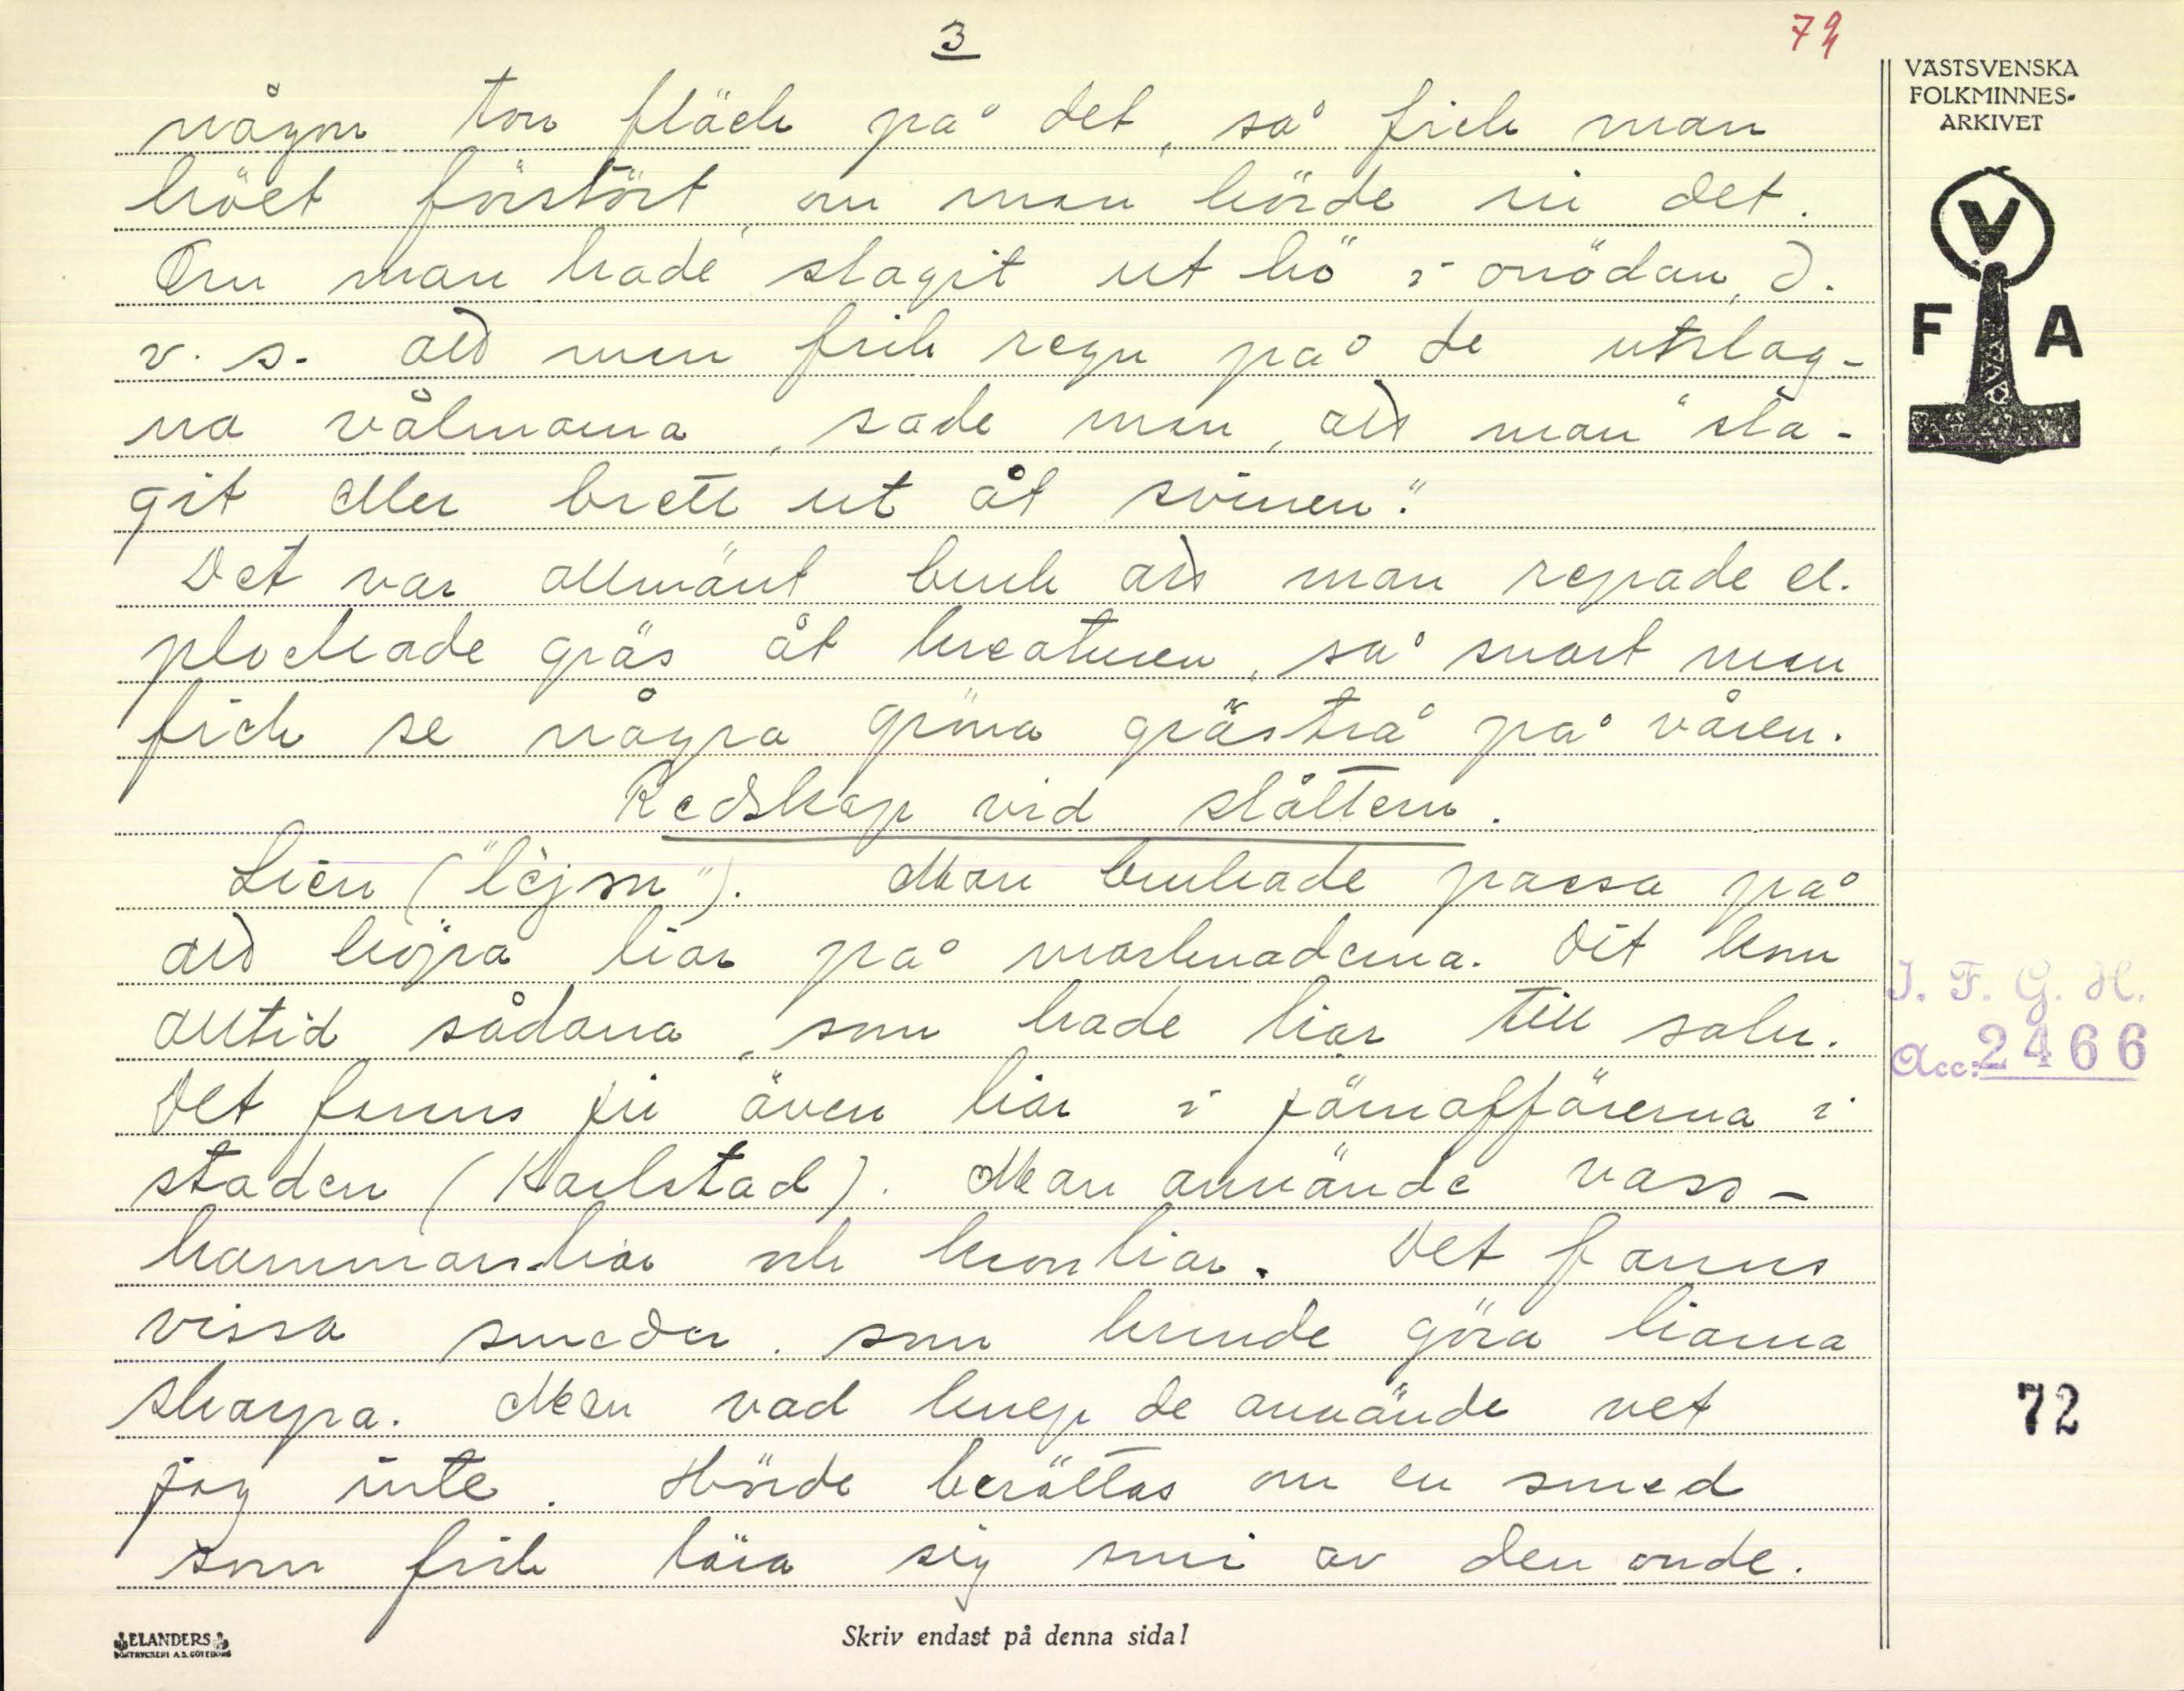 3
72
VÄSTSVENSKA
FOLKMINNES-
ARKIVET
V
F A
någon torr fläck på det, så fick man
höet förstört, om man körde in det.
Om man hade slagit ut hö i onödan, d.
v. s. att man fick regn på de utslag-
na vålmarna, sade man, att man "sla-
git eller brett ut åt svinen".
Det var allmänt bruk att man repade el.
plockade gräs åt kreaturen, så snart man
fick se några gröna grässtrå på våren.
Redskap vid slåttern.
Lien ("lèjsn"). Man brukade passa på
att köpa liar på marknaderna. Dit kom
alltid sådana, som hade liar till salu.
Det fanns ju även liar i järnaffärerna i
staden (Karlstad). Man använde vass-
hammarsliar och kronliar. Det fanns
vissa smeder, som kunde göra liarna
skarpa. Men vad knep de använde vet
jag inte. Hörde berättas om en smed
som fick lära sig smi av den onde.
I. F. G. H.
Acc: 2466
72
ELANDERS
BOKTRYCKERI A.B. GÖTEBORG
Skriv endast på denna sida!